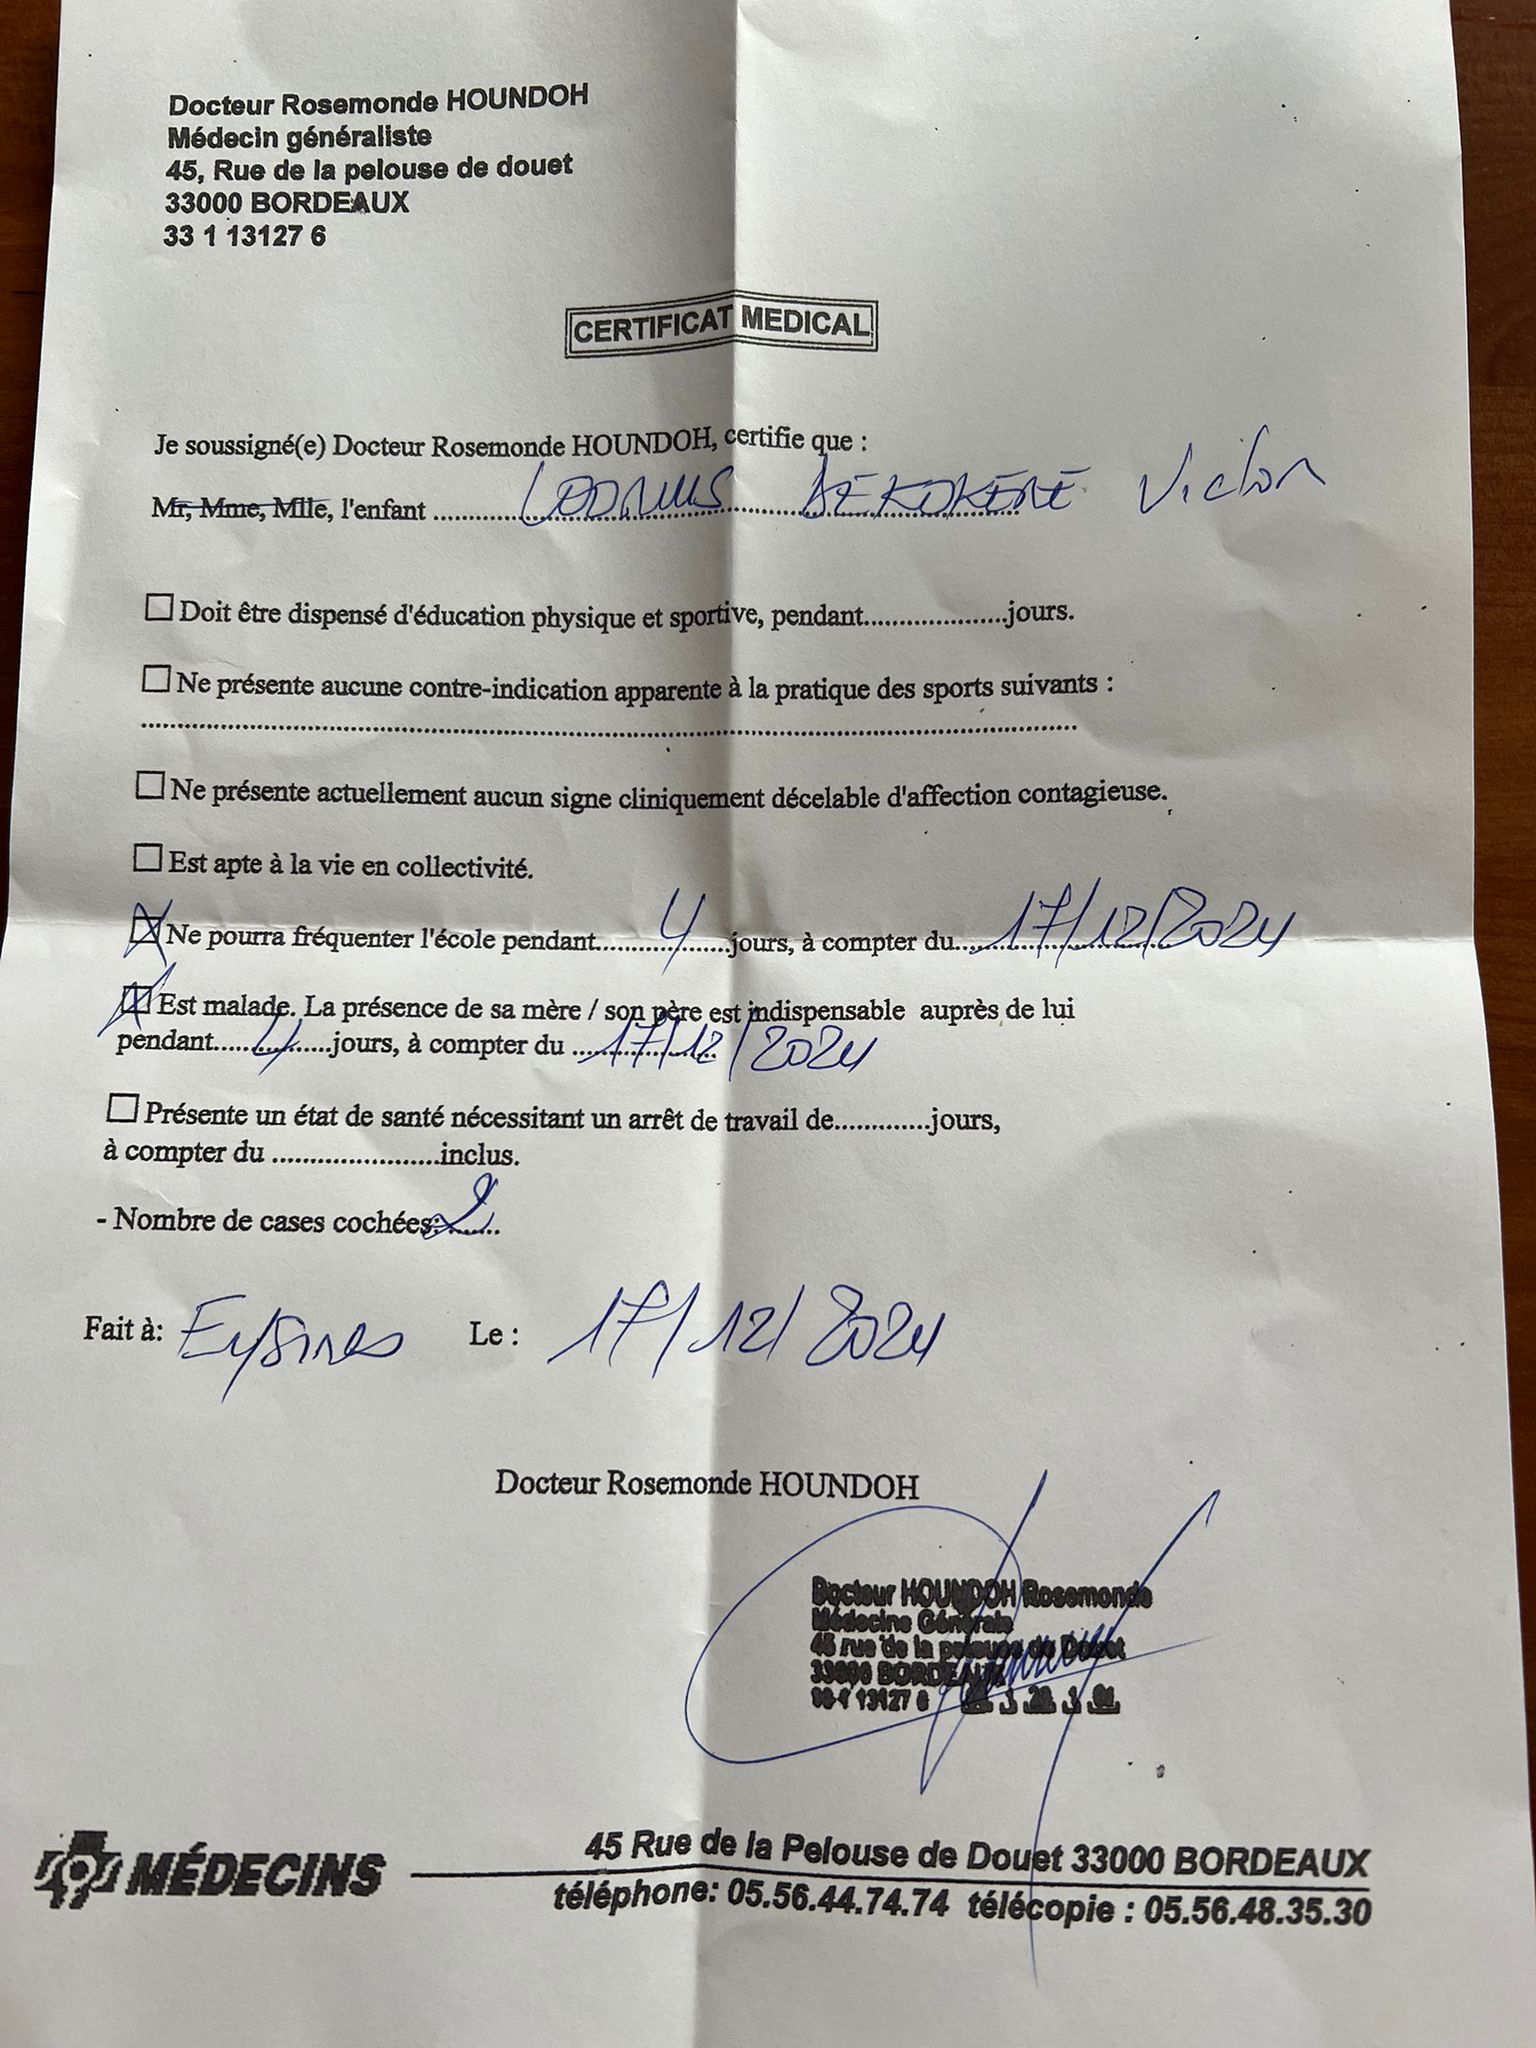 Docteur Rosemonde HOUNDOH
Médecin généraliste
45, Rue de la pelouse de douet
33000 BORDEAUX
33 1 13127 6
CERTIFICAT MEDICAL
Je soussigné(e) Docteur Rosemonde HOUNDOH, certifie que :
Mr, Mme, Mlle, l'enfant .......... DEKOKERE Victor
Doit être dispensé d'éducation physique et sportive, pendant...................jours.
Ne présente aucune contre-indication apparente à la pratique des sports suivants :
Ne présente actuellement aucun signe cliniquement décelable d'affection contagieuse.
Est apte à la vie en collectivité.
Ne pourra fréquenter l'école pendant..........4.......jours, à compter du....17/12/2024
Est malade. La présence de sa mère / son père est indispensable auprès de lui
pendant.....4.....jours, à compter du ...17/12/2024
Présente un état de santé nécessitant un arrêt de travail de.............jours,
à compter du ......................inclus.
- Nombre de cases cochées: 2
Fait à: Eysines Le : 17/12/2024
Docteur Rosemonde HOUNDOH
Docteur HOUNDOH Rosemonde
Médecine Générale
45 rue de la pelouse de Douet
33000 BORDEAUX
MÉDECINS
45 Rue de la Pelouse de Douet 33000 BORDEAUX
téléphone: 05.56.44.74.74 télécopie : 05.56.48.35.30